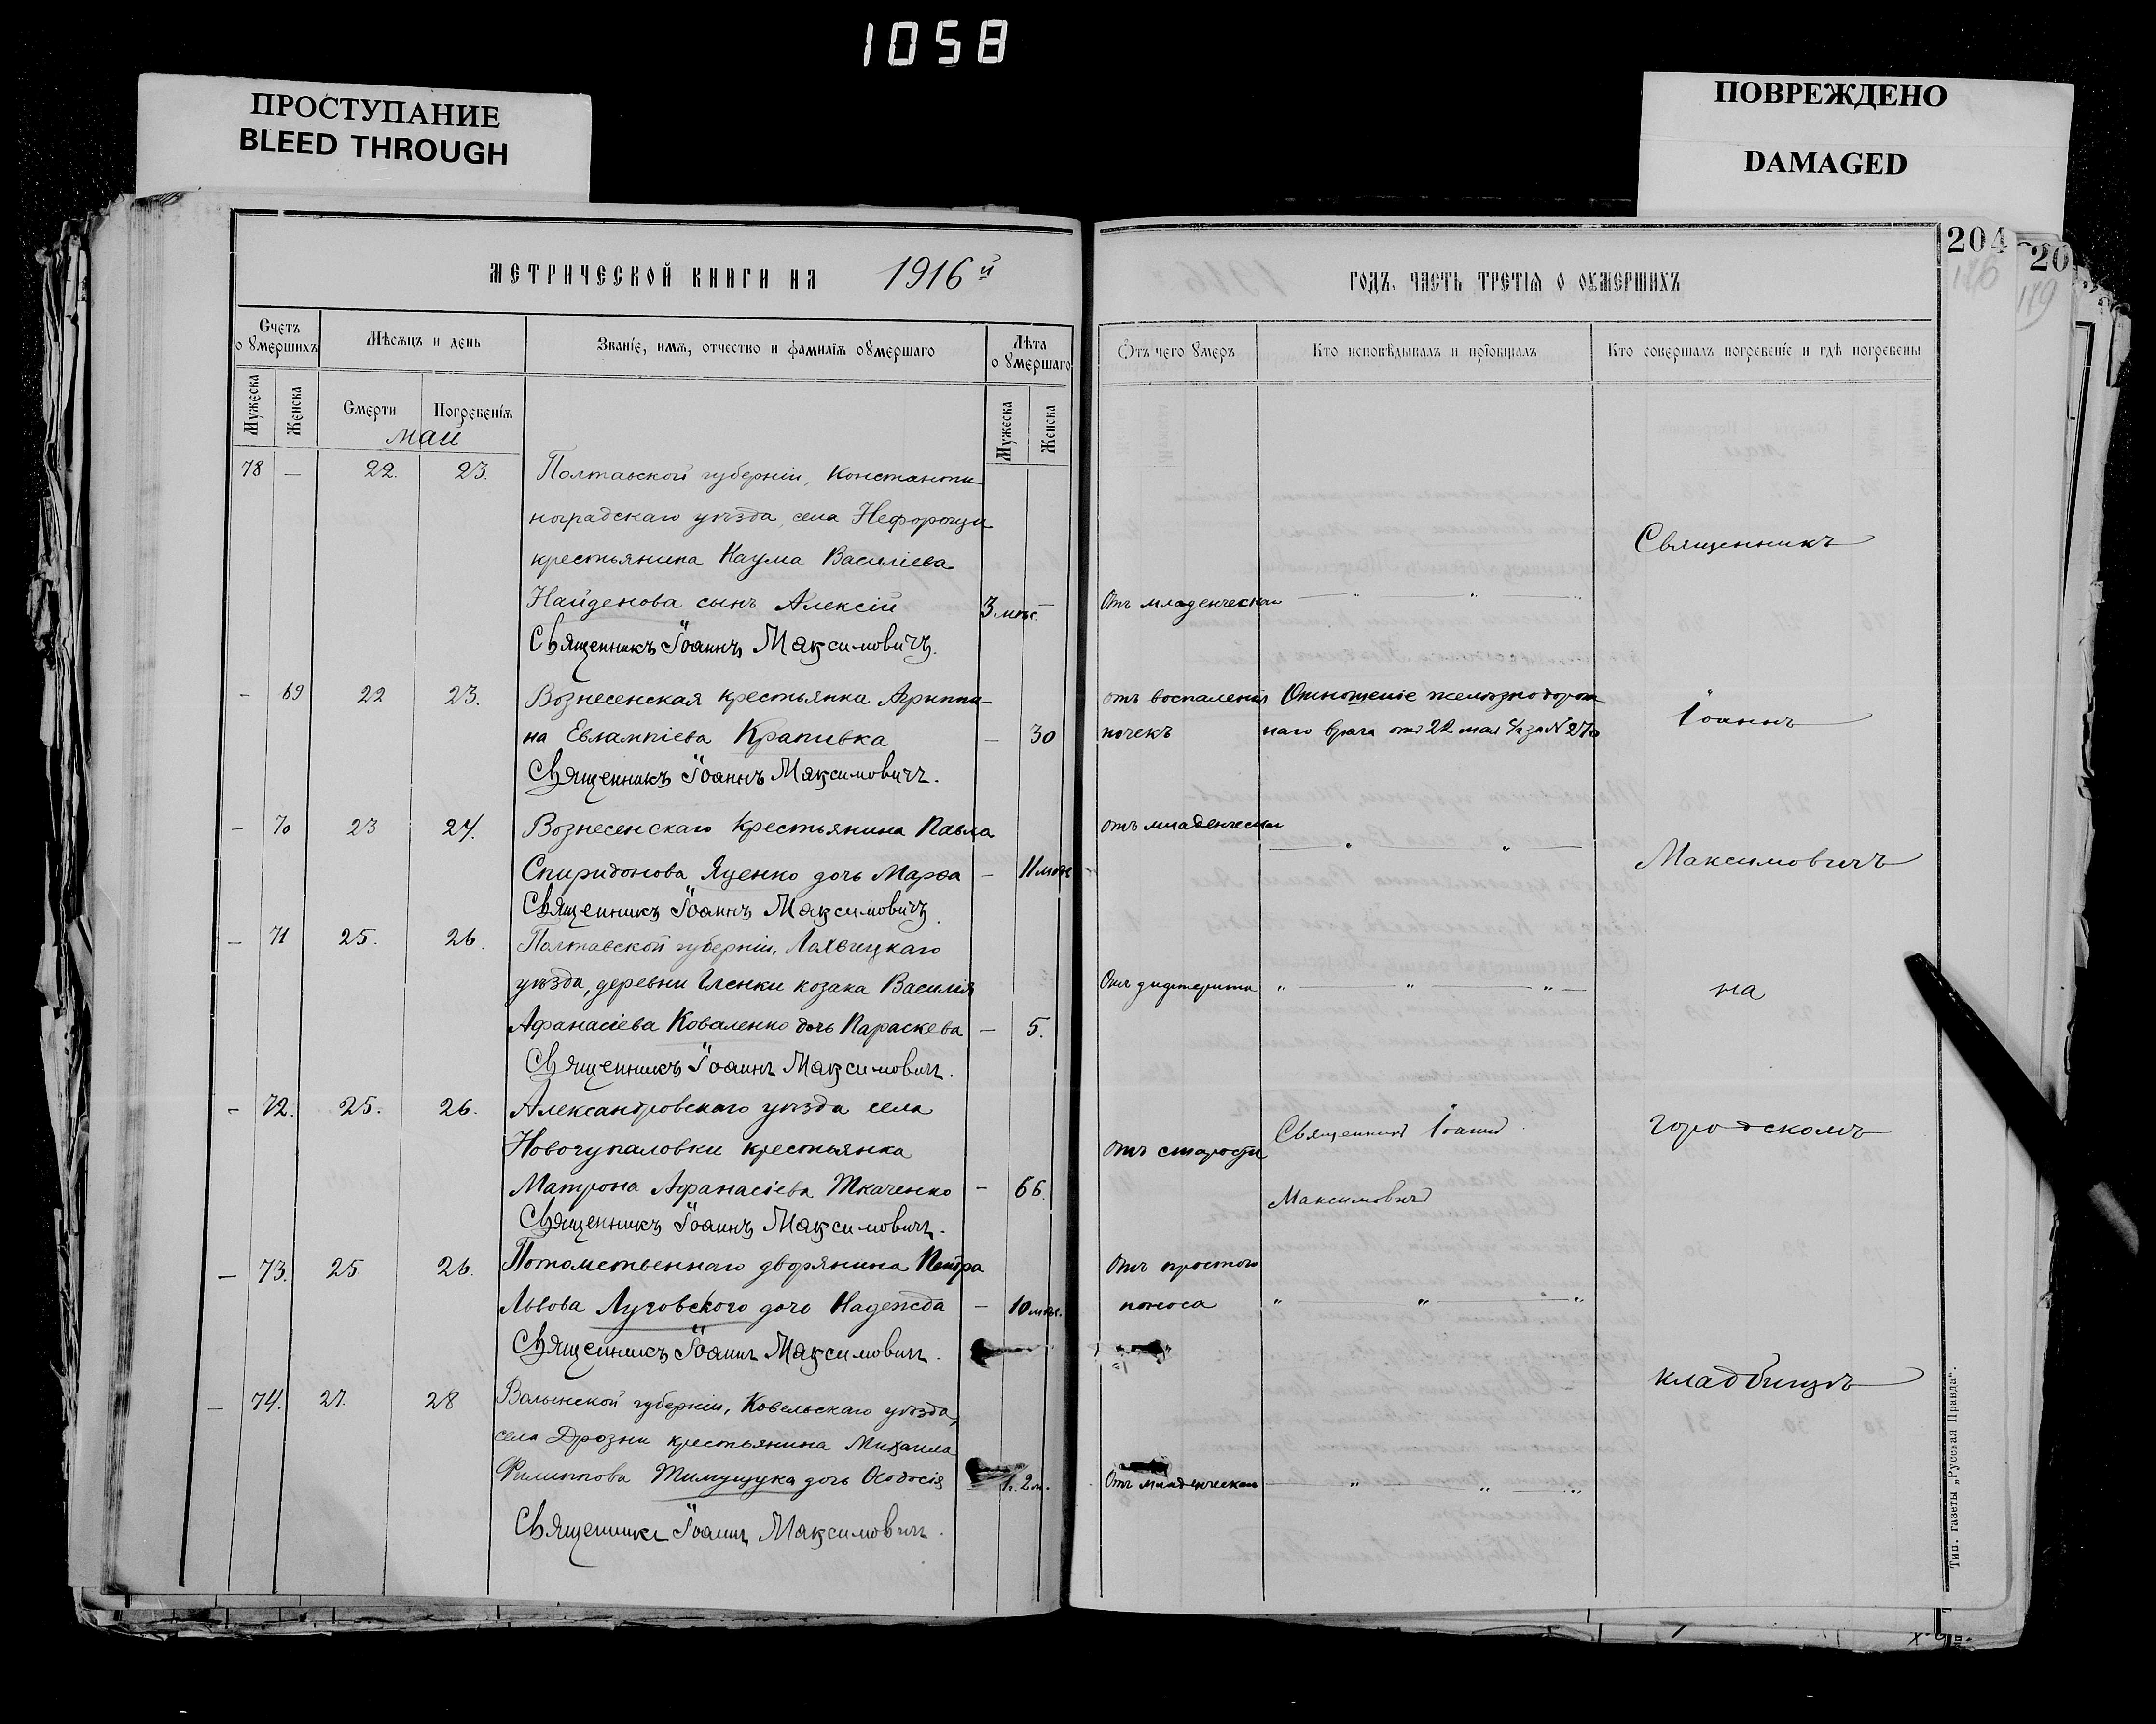 1058
ПРОСТУПАНИЕ
BLEED THROUGH
ПОВРЕЖДЕНО
DAMAGED
204
20
126
119
МЕТРИЧЕСКОЙ КНИГИ НА 1916й
ГОДЪ, ЧАСТЬ ТРЕТІЯ О ОУМЕРШИХЪ
Счетъ оумершихъ
Мѣсяцъ и день
Званіе, имя, отчество и фамилія оумершаго
Лѣта оумершаго
Отъ чего умеръ
Кто исповѣдывалъ и пріобщалъ
Кто совершалъ погребеніе и гдѣ погребены
Мужеска
Женска
Смерти
Погребенія
Мужеска
Женска
май
78 — 22. 23. Полтавской губерніи, Константи
ноградскаго уѣзда, села Нефорощи
крестьянина Наума Василіева
Найденова сынъ Алексій 3 мѣс. — Отъ младенческой — " — " —
Священникъ Іоаннъ Максимовичъ.
— 69 22 23. Вознесенская крестьянка Агриппи- отъ воспаленія Отношеніе желѣзнодорож
на Евлампіева Крапивка — 30 почекъ наго врача отъ 22 мая с/г за №
Священникъ Іоаннъ Максимовичъ.
— 70 23 24. Вознесенскаго крестьянина Павла отъ младенческой
Спиридонова Яценко дочь Марѳа — 11 мѣс — " — " —
Священникъ Іоаннъ Максимовичъ.
— 71 25. 26. Полтавской губерніи, Лохвицкаго
уѣзда, деревни козака Василія Отъ дифтерита " — " — " —
Афанасіева Коваленко дочь Параскева — 5.
Священникъ Іоаннъ Максимовичъ.
— 72. 25. 26. Александровскаго уѣзда села
Новогупаловки крестьянка Отъ старости Священникъ Іоаннъ
Матрона Афанасіева Ткаченко — 66. Максимовичъ
Священникъ Іоаннъ Максимовичъ.
— 73. 25. 26. Потомственнаго дворянина Петра Отъ простого
Львова Луговского дочь Надежда — 10 мѣс. поноса " " — "
Священникъ Іоаннъ Максимовичъ.
— 74. 27. 28 Волынской губерніи, Ковельскаго уѣзда,
села Дрозни крестьянина Михаила
Филиппова Тимущука дочь Ѳеодосія 1г. 2 м. Отъ младенческой — " — " — "
Священникъ Іоаннъ Максимовичъ.
Священникъ
Іоаннъ
Максимовичъ
на
городскомъ
кладбищѣ
Тип. газеты „Русская Правда“.